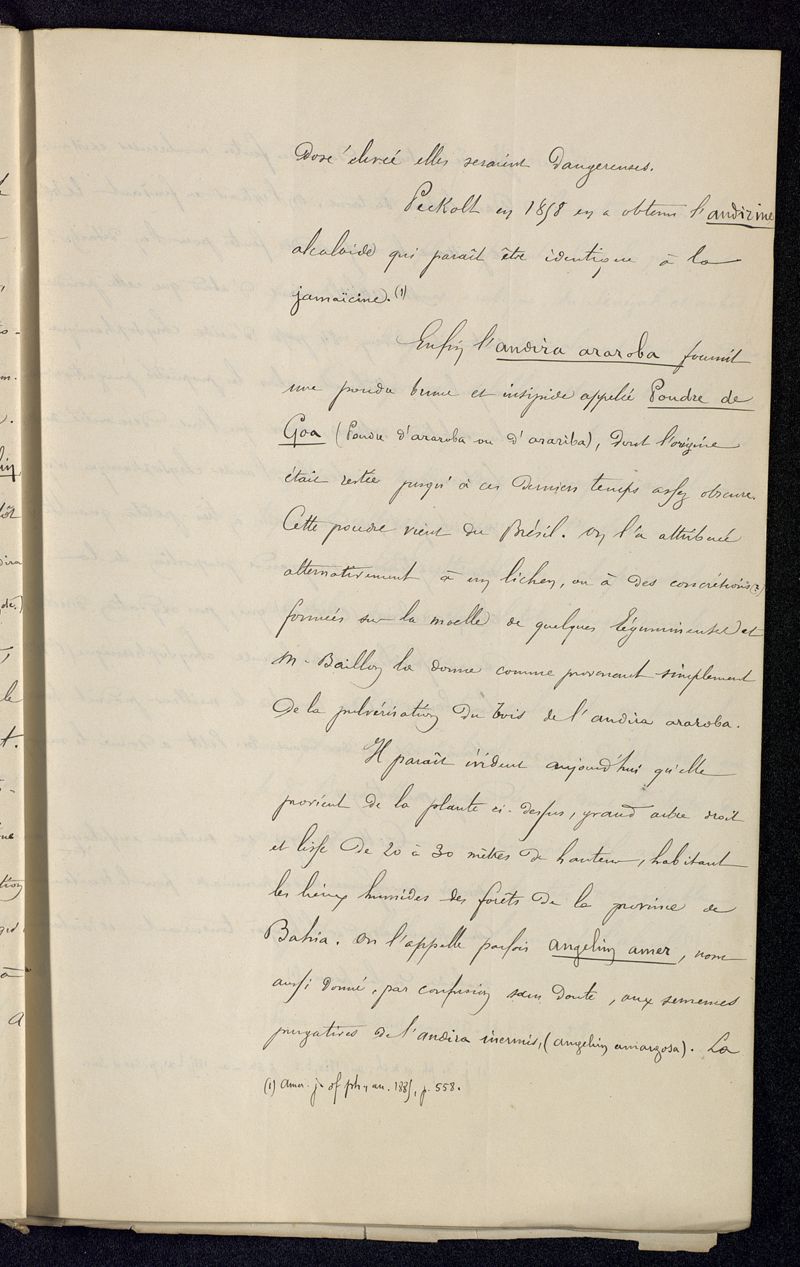 Dose élevée elles seraient dangereuses.
Peckolt en 1858 en a obtenu l'andirine
alcaloide qui paraît être identique à la
jamaïcine. (1)
Enfin l'andira araroba fournit
une poudre brune et insipide appelée Poudre de
Goa (Poudre d'araroba ou d'arariba), dont l'origine
était restée jusqu'à ces derniers temps assez obscure.
Cette poudre vient du Brésil. On l'a attribuée
alternativement à un lichen, ou à des concrétions (2)
formées sur la moelle de quelques légumineuses et
M. Baillon la donne comme provenant simplement
de la pulvérisation du bois de l'andira araroba.
Il paraît évident aujourd'hui qu'elle
provient de la plante ci-dessus, grand arbre droit
et lisse de 20 à 30 mètres de hauteur, habitant
les lieux humides des forêts de la province de
Bahia. On l'appelle parfois angelin amer, nom
aussi donné, par confusion sans doute, aux semences
purgatives de l'andira inermis, (angelin amargosa). La
(1) Amer. j. of ph. an. 1885, p. 558.